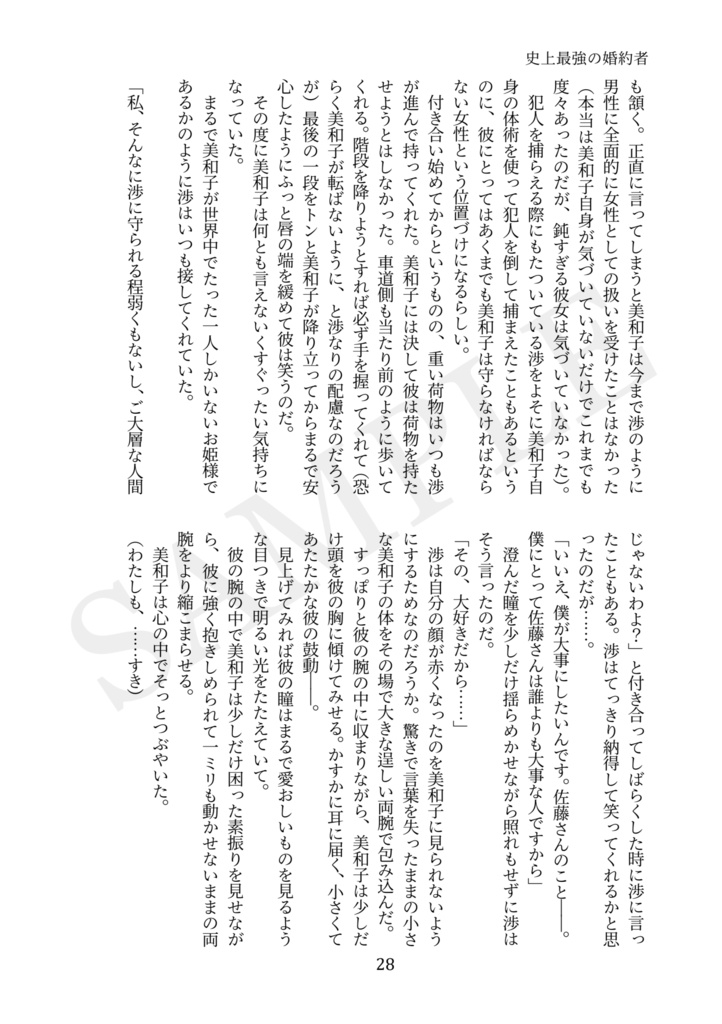 史上最強の婚約者
も頷く。正直に言ってしまうと美和子は今まで渉のように
男性に全面的に女性としての扱いを受けたことはなかった
（本当は美和子自身が気づいていないだけでこれまでも
度々あったのだが、鈍すぎる彼女は気づいていなかった）。
犯人を捕らえる際にもたついている渉をよそに美和子自
身の体術を使って犯人を倒して捕まえたこともあるという
のに、彼にとってはあくまでも美和子は守らなければなら
ない女性という位置づけになるらしい。
付き合い始めてからというものの、重い荷物はいつも渉
が進んで持ってくれた。美和子には決して彼は荷物を持た
せようとはしなかった。車道側も当たり前のように歩いて
くれる。階段を降りようとすれば必ず手を握ってくれて（恐
らく美和子が転ばないように、と渉なりの配慮なのだろう
が）最後の一段をトンと美和子が降り立ってからまるで安
心したようにふっと唇の端を緩めて彼は笑うのだ。
その度に美和子は何とも言えないくすぐったい気持ちに
なっていた。
まるで美和子が世界中でたった一人しかいないお姫様で
あるかのように渉はいつも接してくれていた。
「私、そんなに渉に守られる程弱くもないし、ご大層な人間
じゃないわよ？」と付き合ってしばらくした時に渉に言っ
たこともある。渉はてっきり納得して笑ってくれるかと思
ったのだが……。
「いいえ、僕が大事にしたいんです。佐藤さんのこと――。
僕にとって佐藤さんは誰よりも大事な人ですから」
澄んだ瞳を少しだけ揺らめかせながら照れもせずに渉は
そう言ったのだ。
「その、大好きだから……」
渉は自分の顔が赤くなったのを美和子に見られないよう
にするためなのだろうか。驚きで言葉を失ったままの小さ
な美和子の体をその場で大きな逞しい両腕で包み込んだ。
すっぽりと彼の腕の中に収まりながら、美和子は少しだ
け頭を彼の胸に傾けてみせる。かすかに耳に届く、小さくて
あたたかな彼の鼓動――。
見上げてみれば彼の瞳はまるで愛おしいものを見るよう
な目つきで明るい光をたたえていて。
彼の腕の中で美和子は少しだけ困った素振りを見せなが
ら、彼に強く抱きしめられて一ミリも動かせないままの両
腕をより縮こまらせる。
美和子は心の中でそっとつぶやいた。
（わたしも、……すき）
28
SAMPLE